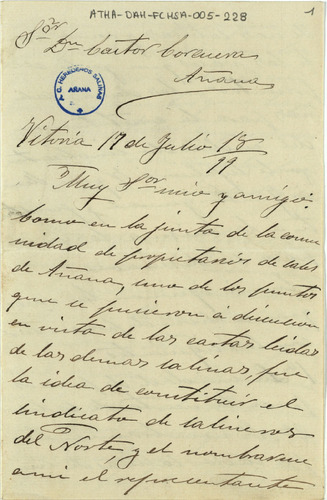 ATHA-DAH-FCHSA-005-228
1
Sor
Dn Castor Corcuera
Añana
A.C. HEREDEROS SALINAS
AÑANA
Vitoria 17 de Julio 18/99
Muy Sor mio y amigo:
Como en la junta de la comu
nidad de propietarios de sales
de Añana, uno de los puntos
que se pusieron á discusion
en vista de las cartas leidas
de las demas salinas, fue
la idea de constituir el
sindicato de salineros
del Norte, y el nombrarme
a mi el representante